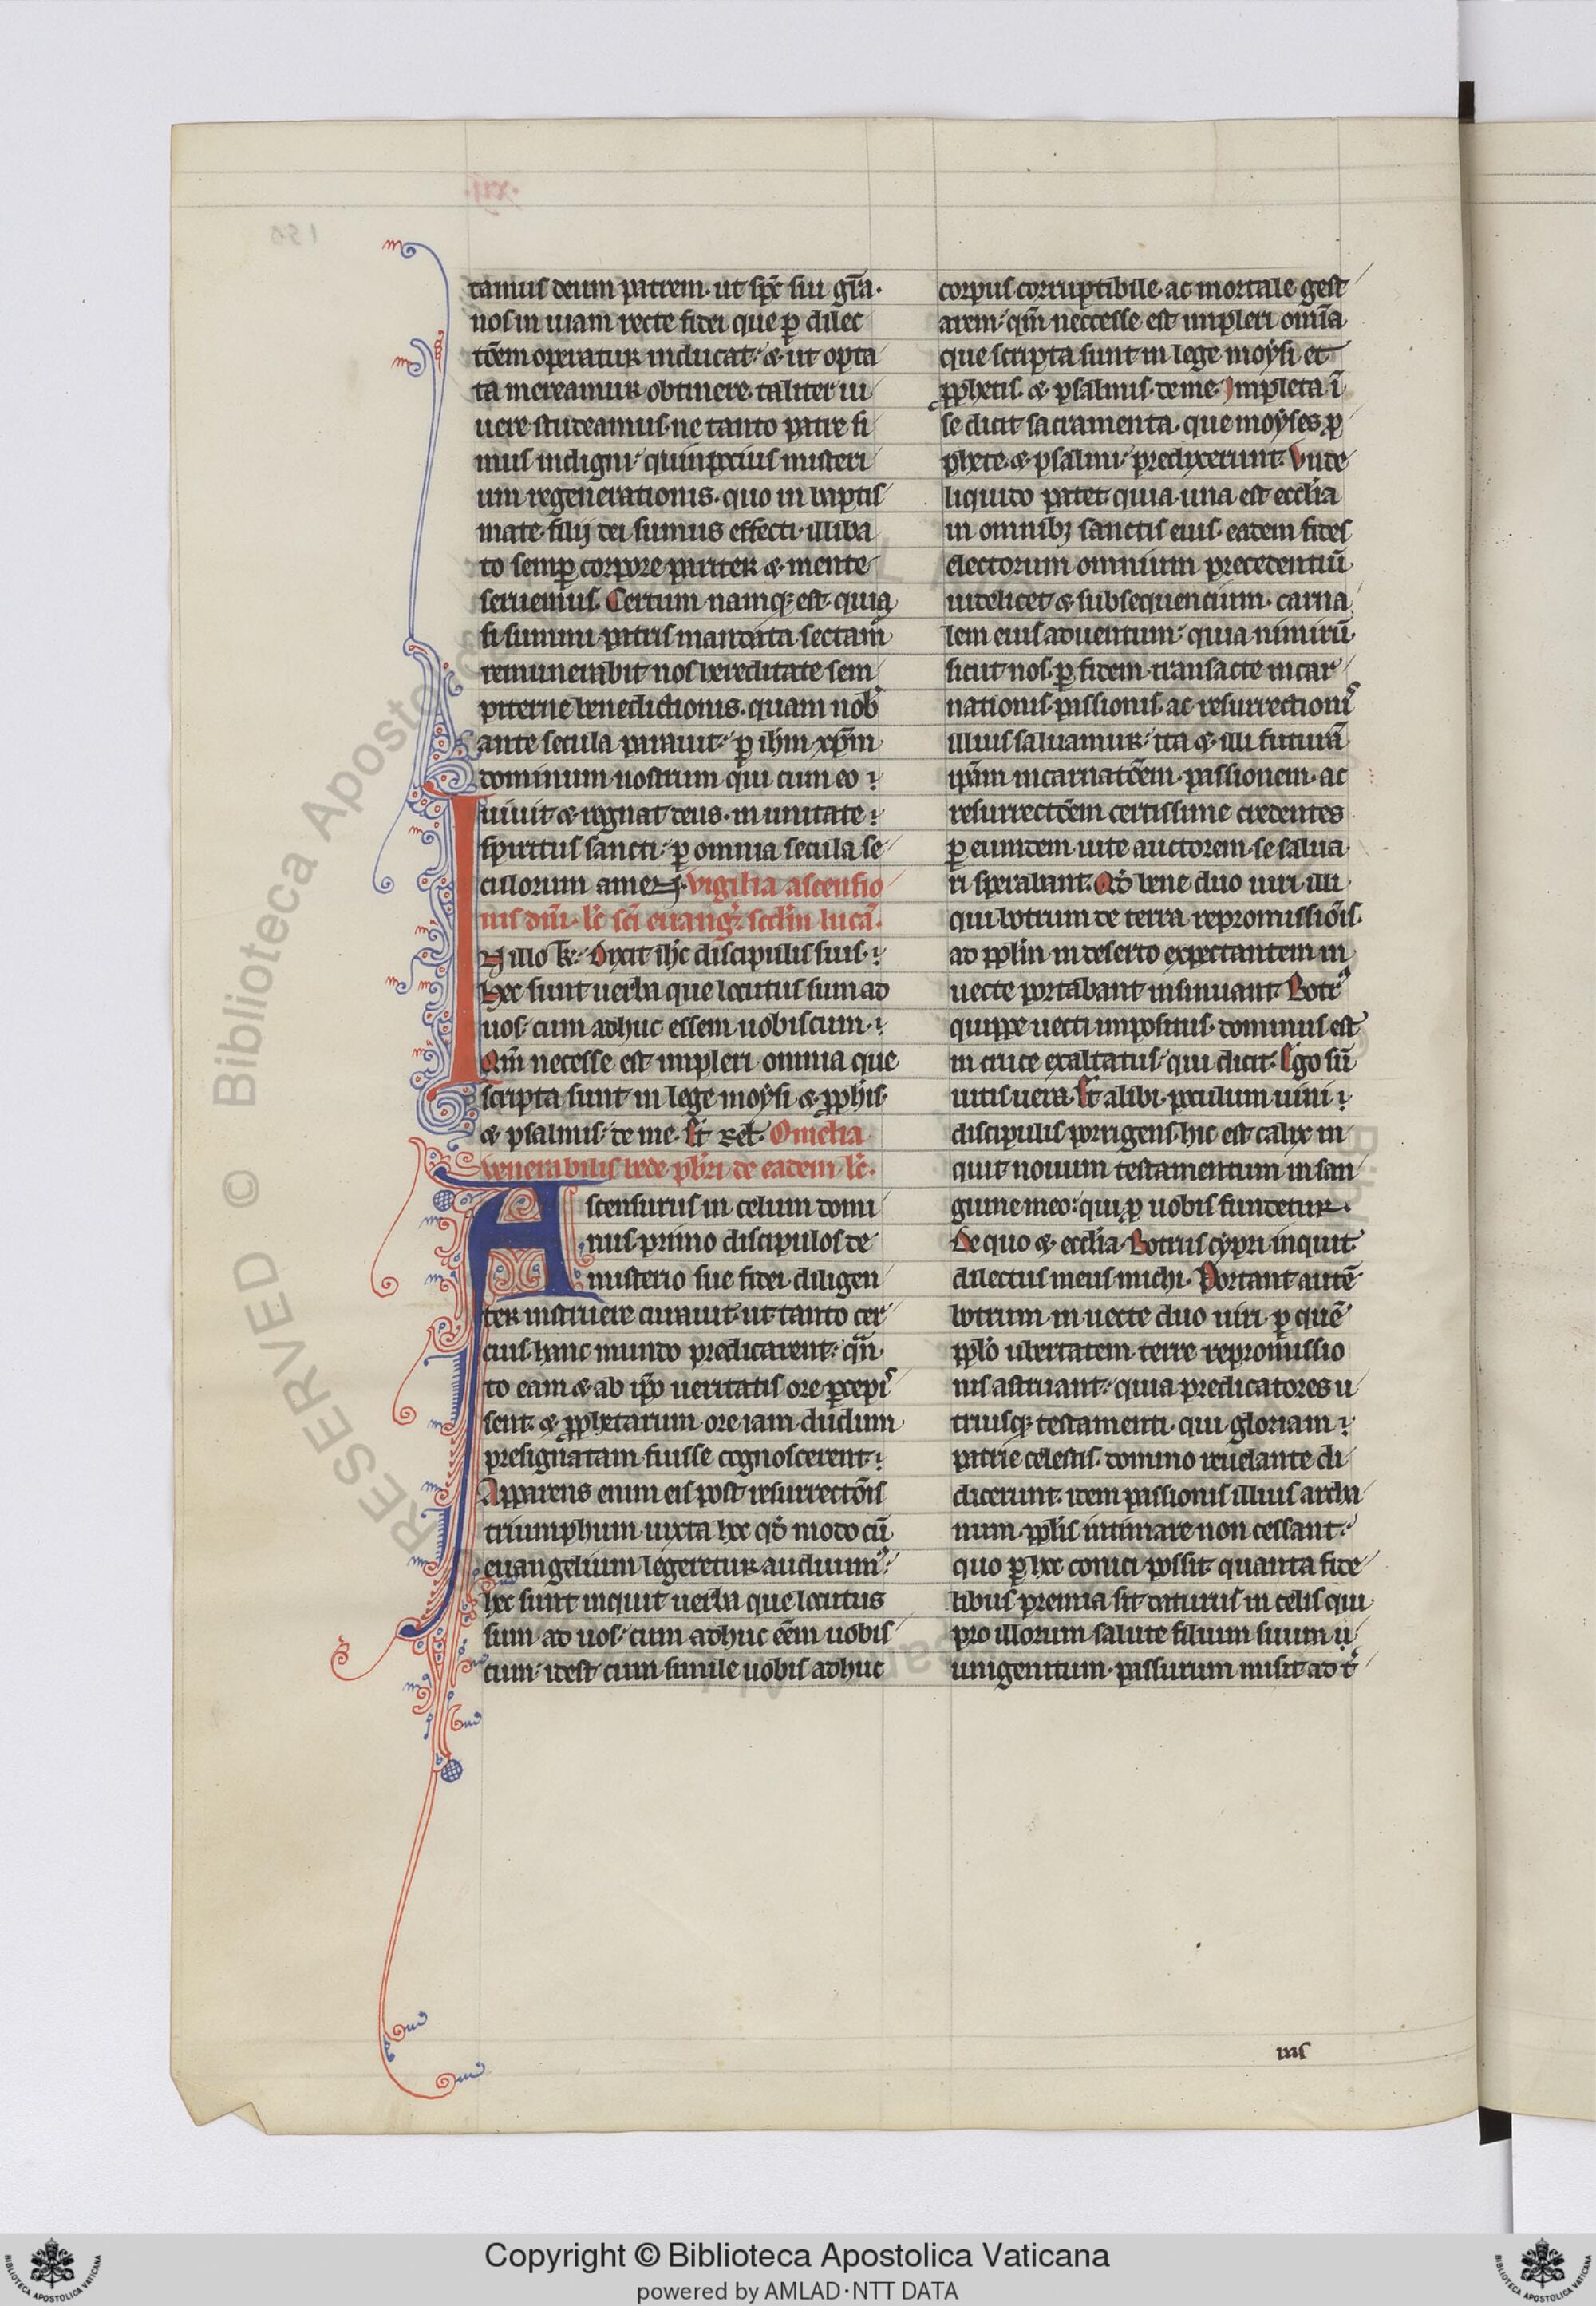 tamus deum patrem· ut sp̅c sui gr̅a·
nos in uiam recte fidei que ꝑ dilec
to̅em operatur inducat· ⁊ ut opta
ta mereamur obtinere· taliter ui
uere studeamus· ne tanto patre si
mus indigni· quin pocius misteri
um regenerationis· quo in baptis
mate· filij dei sumus effecti· illiba
to semꝑ corpore pariter ⁊ mente
seruemus. Certum namqꝫ est· quia
si summi patris mandata sectam̅
remunerabit nos hereditate sem
piterne benedictionis· quam nob̅
ante secula parauit· ꝑ ih̅m xp̅m
dominum nostrum qui cum eo
uiuit ⁊ regnat deus· in unitate
spiritus sancti· ꝑ omnia secula se
culorum amen. Vigilia ascensio
nis dn̅i· lc̅ sc̅i euang̅· scd̅m luca̅·
IN illo t̅r· Dixit ih̅c discipulis suis·
Hec sunt uerba que locutus sum ad
uos· cum adhuc essem uobiscum·
Qm̅ necesse est impleri omnia que
scripta sunt in lege moẏsi ⁊ ꝓph̅is·
⁊ psalmis· de me. Et rel̅. Omelia
uenerabilis bede pb̅ri de eadem lc̅·
Ascensurus in celum domi
nus· primo discipulos de
misterio sue fidei diligen
ter instruere curauit· ut tanto cer
cius hanc mundo predicarent· qn̅
to eam ⁊ ab ip̅o ueritatis ore ꝑcepis
sent· ⁊ ꝓphetarum ore iam dudum
presignatam fuisse cognoscerent·
Apparens enim eis post resurrecto̅is
triumphum· iuxta hoc qd̅ modo cu̅
euangelium legeretur audiuim᷒·
hec sunt inquit uerba que locutus
sum ad uos· cum adhuc ee̅m uobis
cum· idest cum simile uobis adhuc
corpus corruptibile ac mortale gest
arem· qm̅ neccesse est impleri om̅ia
que scripta sunt in lege moẏsi et
ꝓphetis· ⁊ psalmis· de me. Impleta i̅
se dicit sacramenta· que moẏses ꝓ
phete· ⁊ psalmi· predixerunt. Vnde
liquido patet· quia una est eccl̅ia
in omnibꝫ sanctis eius· eadem fides
electorum omnium precedentiu̅
uidelicet ⁊ subsequencium· carna
lem eius aduentum· quia nimiru̅
sicut nos· ꝑ fidem transacte incar
nationis· passionis· ac resurrectionis
illius saluamur· ita ⁊ illi futura̅
ip̅am incarnato̅em· passionem· ac
resurrecto̅em certissime credentes
ꝑ eumdem uite auctorem· se salua
ri sperabant. Qd̅ bene duo uiri illi
qui botrum de terra repromissio̅is
ad ppl̅m in deserto expectantem in
uecte portabant insinuant. Botr᷒
quippe uecti impositus· dominus est
in cruce exaltatus· qui dicit. Ego su̅
uitis uera. Et alibi· poculum uini
discipulis porrigens· hic est calix in
quit nouum testamentum in san
guine meo· qui ꝓ uobis fundetur·
De quo ⁊ eccl̅ia· Botrus cẏpri inquit
dilectus meus michi. Portant aute̅
botrum in uecte duo uiri· ꝑ que̅
ppl̅o ubertatem terre repromissio
nis astruant· quia predicatores u
triusqꝫ testamenti· qui gloriam
patrie celestis· domino reuelante di
dicerunt· idem passionis illius archa
num· ppl̅is intimare non cessant·
quo ꝑ hoc conici possit quanta fide
libus premia sit daturus in celis qui
pro illorum salute filium suum u
unigenitum· passurum misit ad t̅r